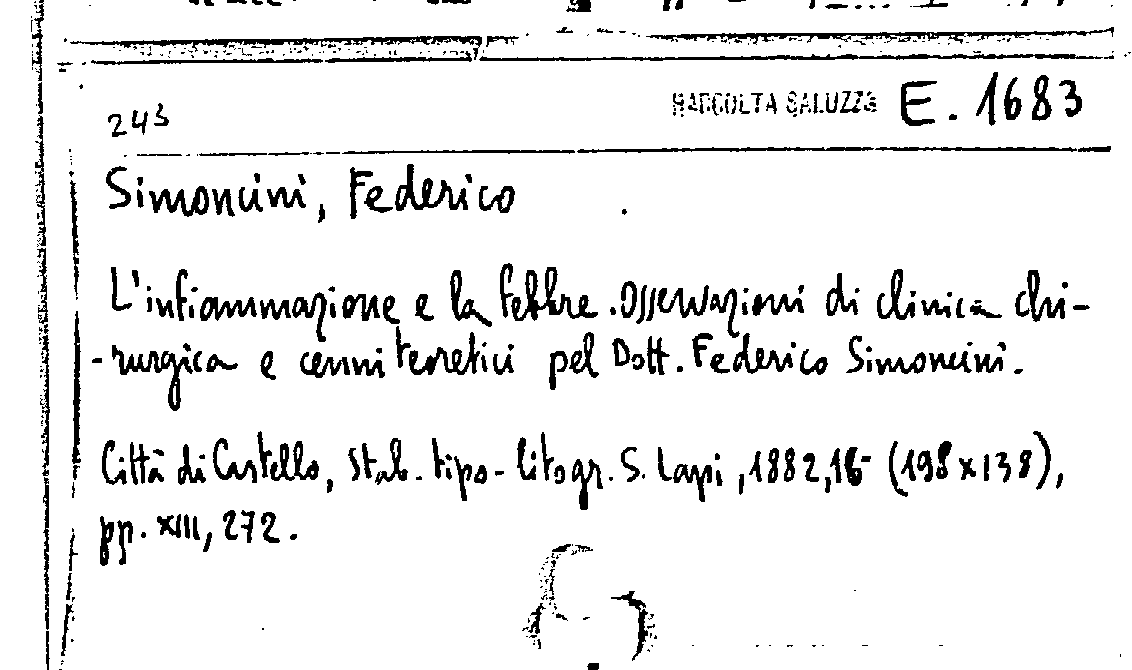 243 RACCOLTA SALUZZO E. 1683
Simoncini, Federico
L'infiammazione e la febbre. Osservazioni di clinica chi-
-rurgica e cenni teoretici pel Dott. Federico Simoncini.
Città di Castello, stab. tipo-litogr. S. Lapi, 1882, 16° (198x138),
pp. XIII, 272.